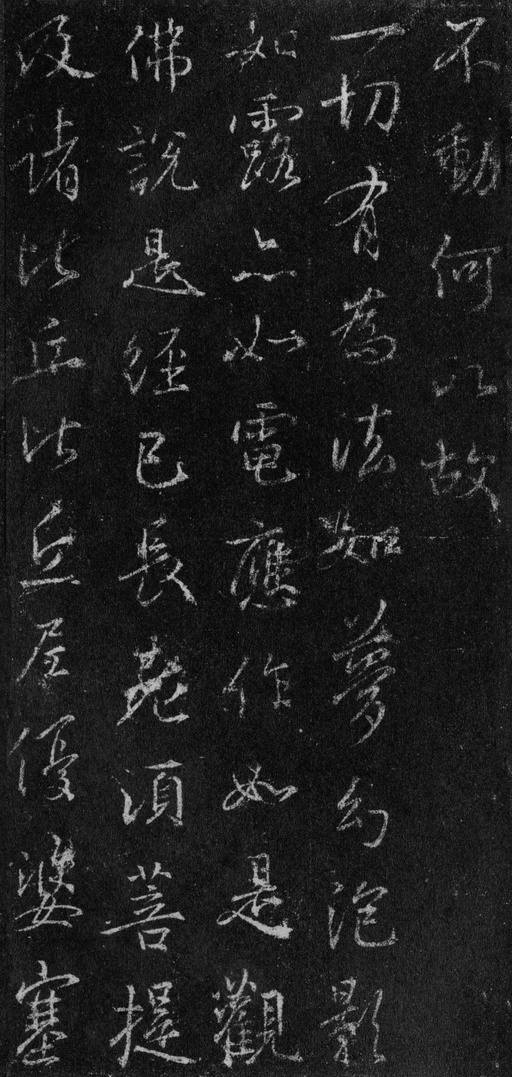 不動何以故
一切有為法如夢幻泡影
如露亦如電應作如是觀
佛說是經已長老須菩提
及諸比丘比丘尼優婆塞